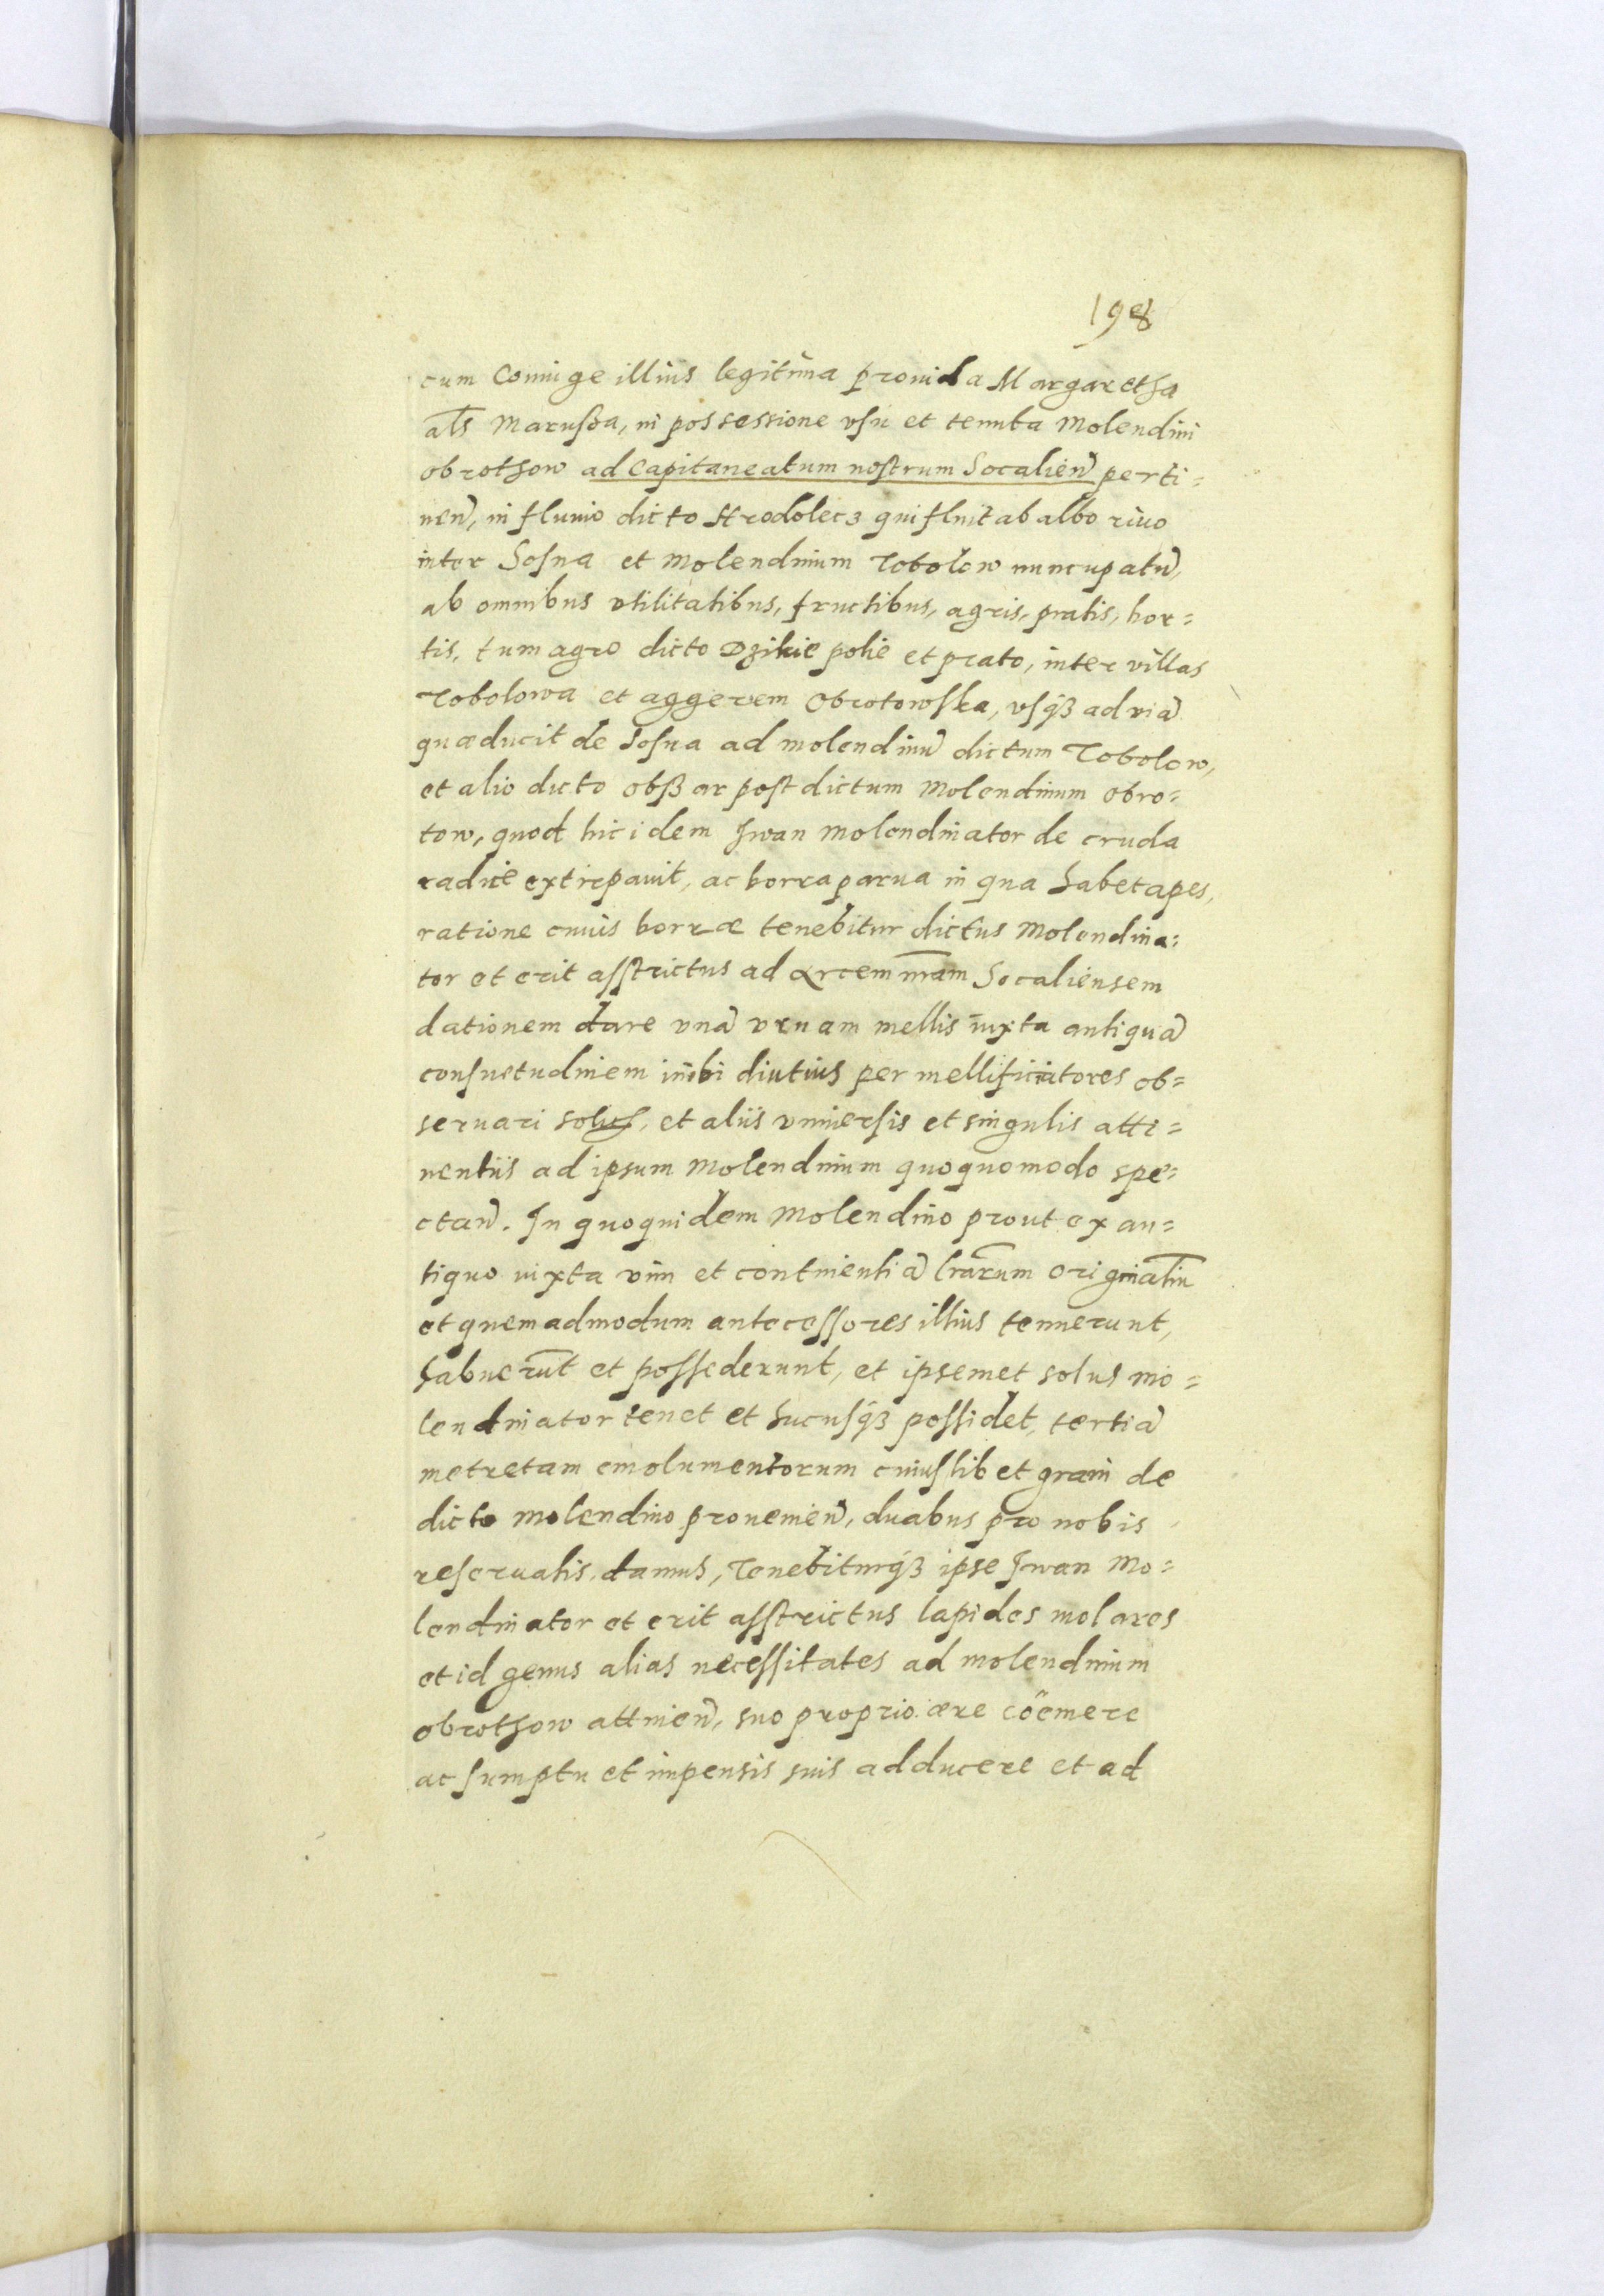 198
cum Coniuge illius legitima prouida Margaretha
als̃ Marußa, in possessione vsu et tenuta Molendini
obrothow ad Capitaneatum nostrum Socalien̄ perti=
nen̄, in fluuio dicto Hrodolecz qui fluit ab albo riuo
inter Sosna et Molendinum Tobolow nuncupatū,
ab omnibus vtilitatibus, fructibus, agris, pratis, hor=
tis, tum agro dicto Dzikie polie et prato, inter villas
Tobolowa et aggerem Obrotowska, vsqȝ ad viā
quæ ducit de Sosna ad molendinū dictum Tobolow,
et alio dicto obßar post dictum Molendinum obro=
tow, quod hic idem Jwan molendinator de cruda
radice extirpauit, ac borra parua in qua habet apes,
ratione cuius borræ tenebitur dictus Molendina=
tor et erit asstrictus ad Arcem nr̄am Socaliensem
dationem dare vnā vrnam mellis iuxta antiquā
consuetudinem inibi diutius per mellificiatores ob=
seruari solit, et aliis vniuersis et singulis atti=
nentiis ad ipsum Molendinum quoquomodo spe=
ctan̄. In quoquidem Molendino prout ex an=
tiquo iuxta vim et continentiā lr̄arum originaliū
et quemadmodum antecessores illius tenuerunt,
habuerūt et possederunt, et ipsemet solus mo=
lendinator tenet et hucusqȝ possidet, tertiā
metretam emolumentorum cuiuslibet grani de
dicto Molendino prouenien̄, duabus pro nobis
reseruatis, damus, Tenebiturqȝ ipse Jwan Mo=
lendinator et erit asstrictus lapides molares
et id genus alias necessitates ad molendinum
obrothow attinen̄, suo proprio ære coëmere
ac sumptu et impensis suis adducere et ad